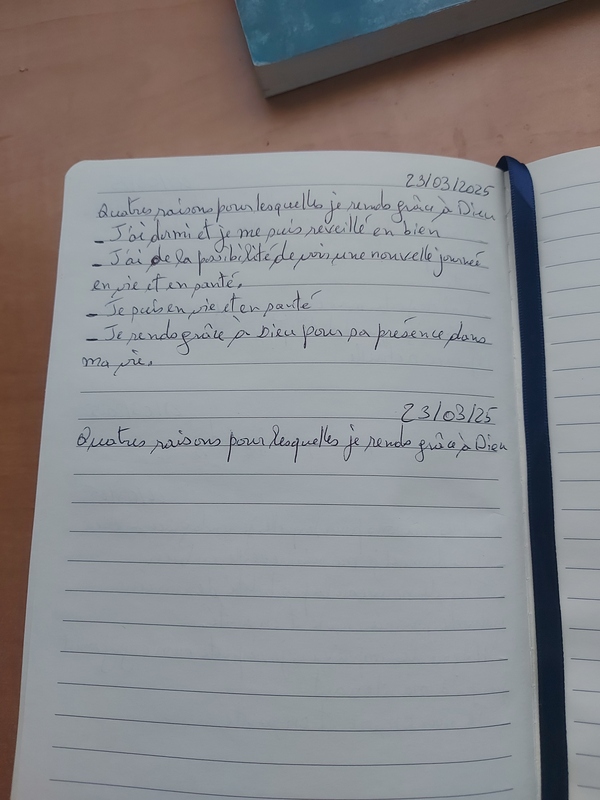 23/03/2025
Quatres raisons pour lesquelles je rends grâce à Dieu
- J'ai dormi et je me suis réveillé en bien
- J'ai de la posibilité de vois une nouvelle journée
en vie et en santé.
- Je suis en vie et en santé
- Je rends grâce à Dieu pour sa présence dans
ma vie.
23/03/25
Quatres raisons pour lesquelles je rends grâce à Dieu